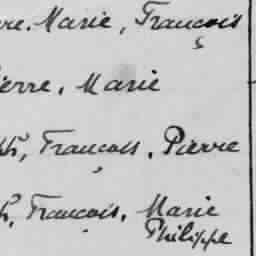 re. Marie, François
ierre, Marie
ph, François, Pierre
h, François, Marie
Philippe